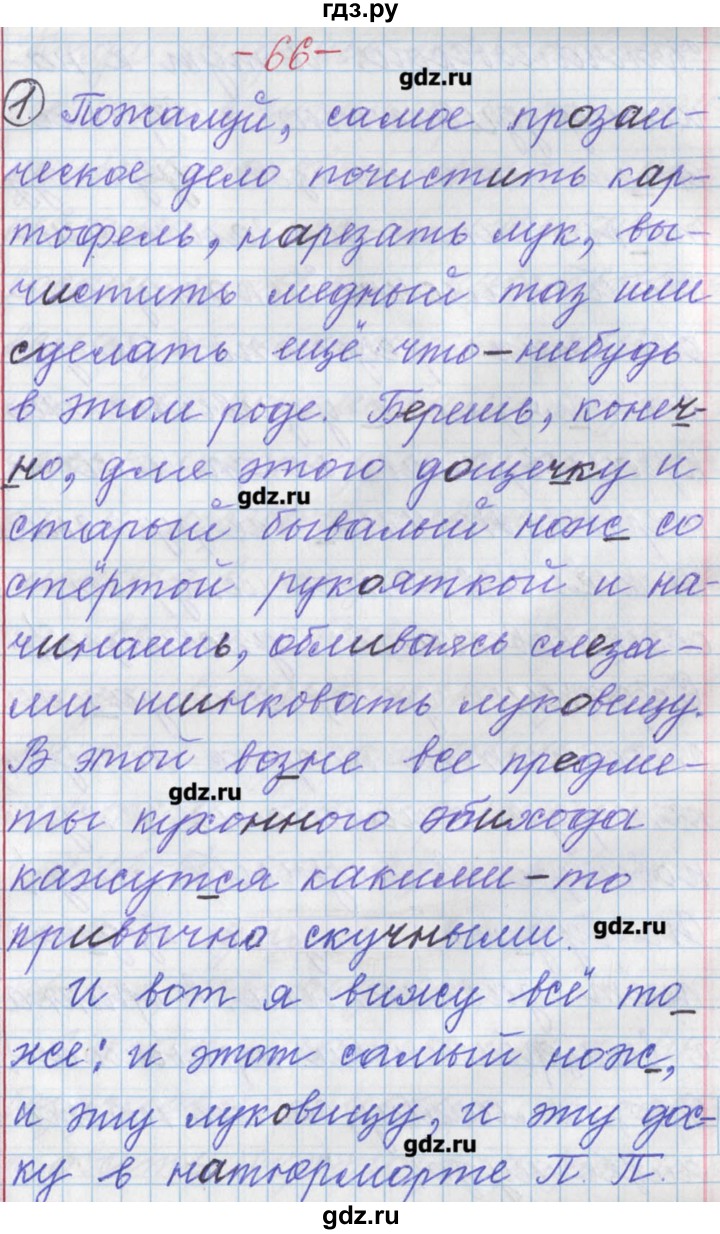 гдз.ру
-66-
gdz.ru
1 Пожалуй, самое прозаи-
ческое дело почистить кар-
тофель, нарезать лук, вы-
чистить медный таз или
сделать ещё что-нибудь
в этом роде. Берешь, конеч-
но, для этого дощечку и
gdz.ru
старый бывалый нож со
стёртой рукояткой и на-
чинаешь, обливаясь слеза-
ми шинковать луковицу.
В этой возне все предме-
gdz.ru
ты кухонного обихода
кажутся какими-то
привычно скучными.
gdz.ru
И вот я вижу всё то
же: и этот самый нож,
и эту луковицу, и эту дос-
gdz.ru
ку в натюрморте П. П.
gdz.ru